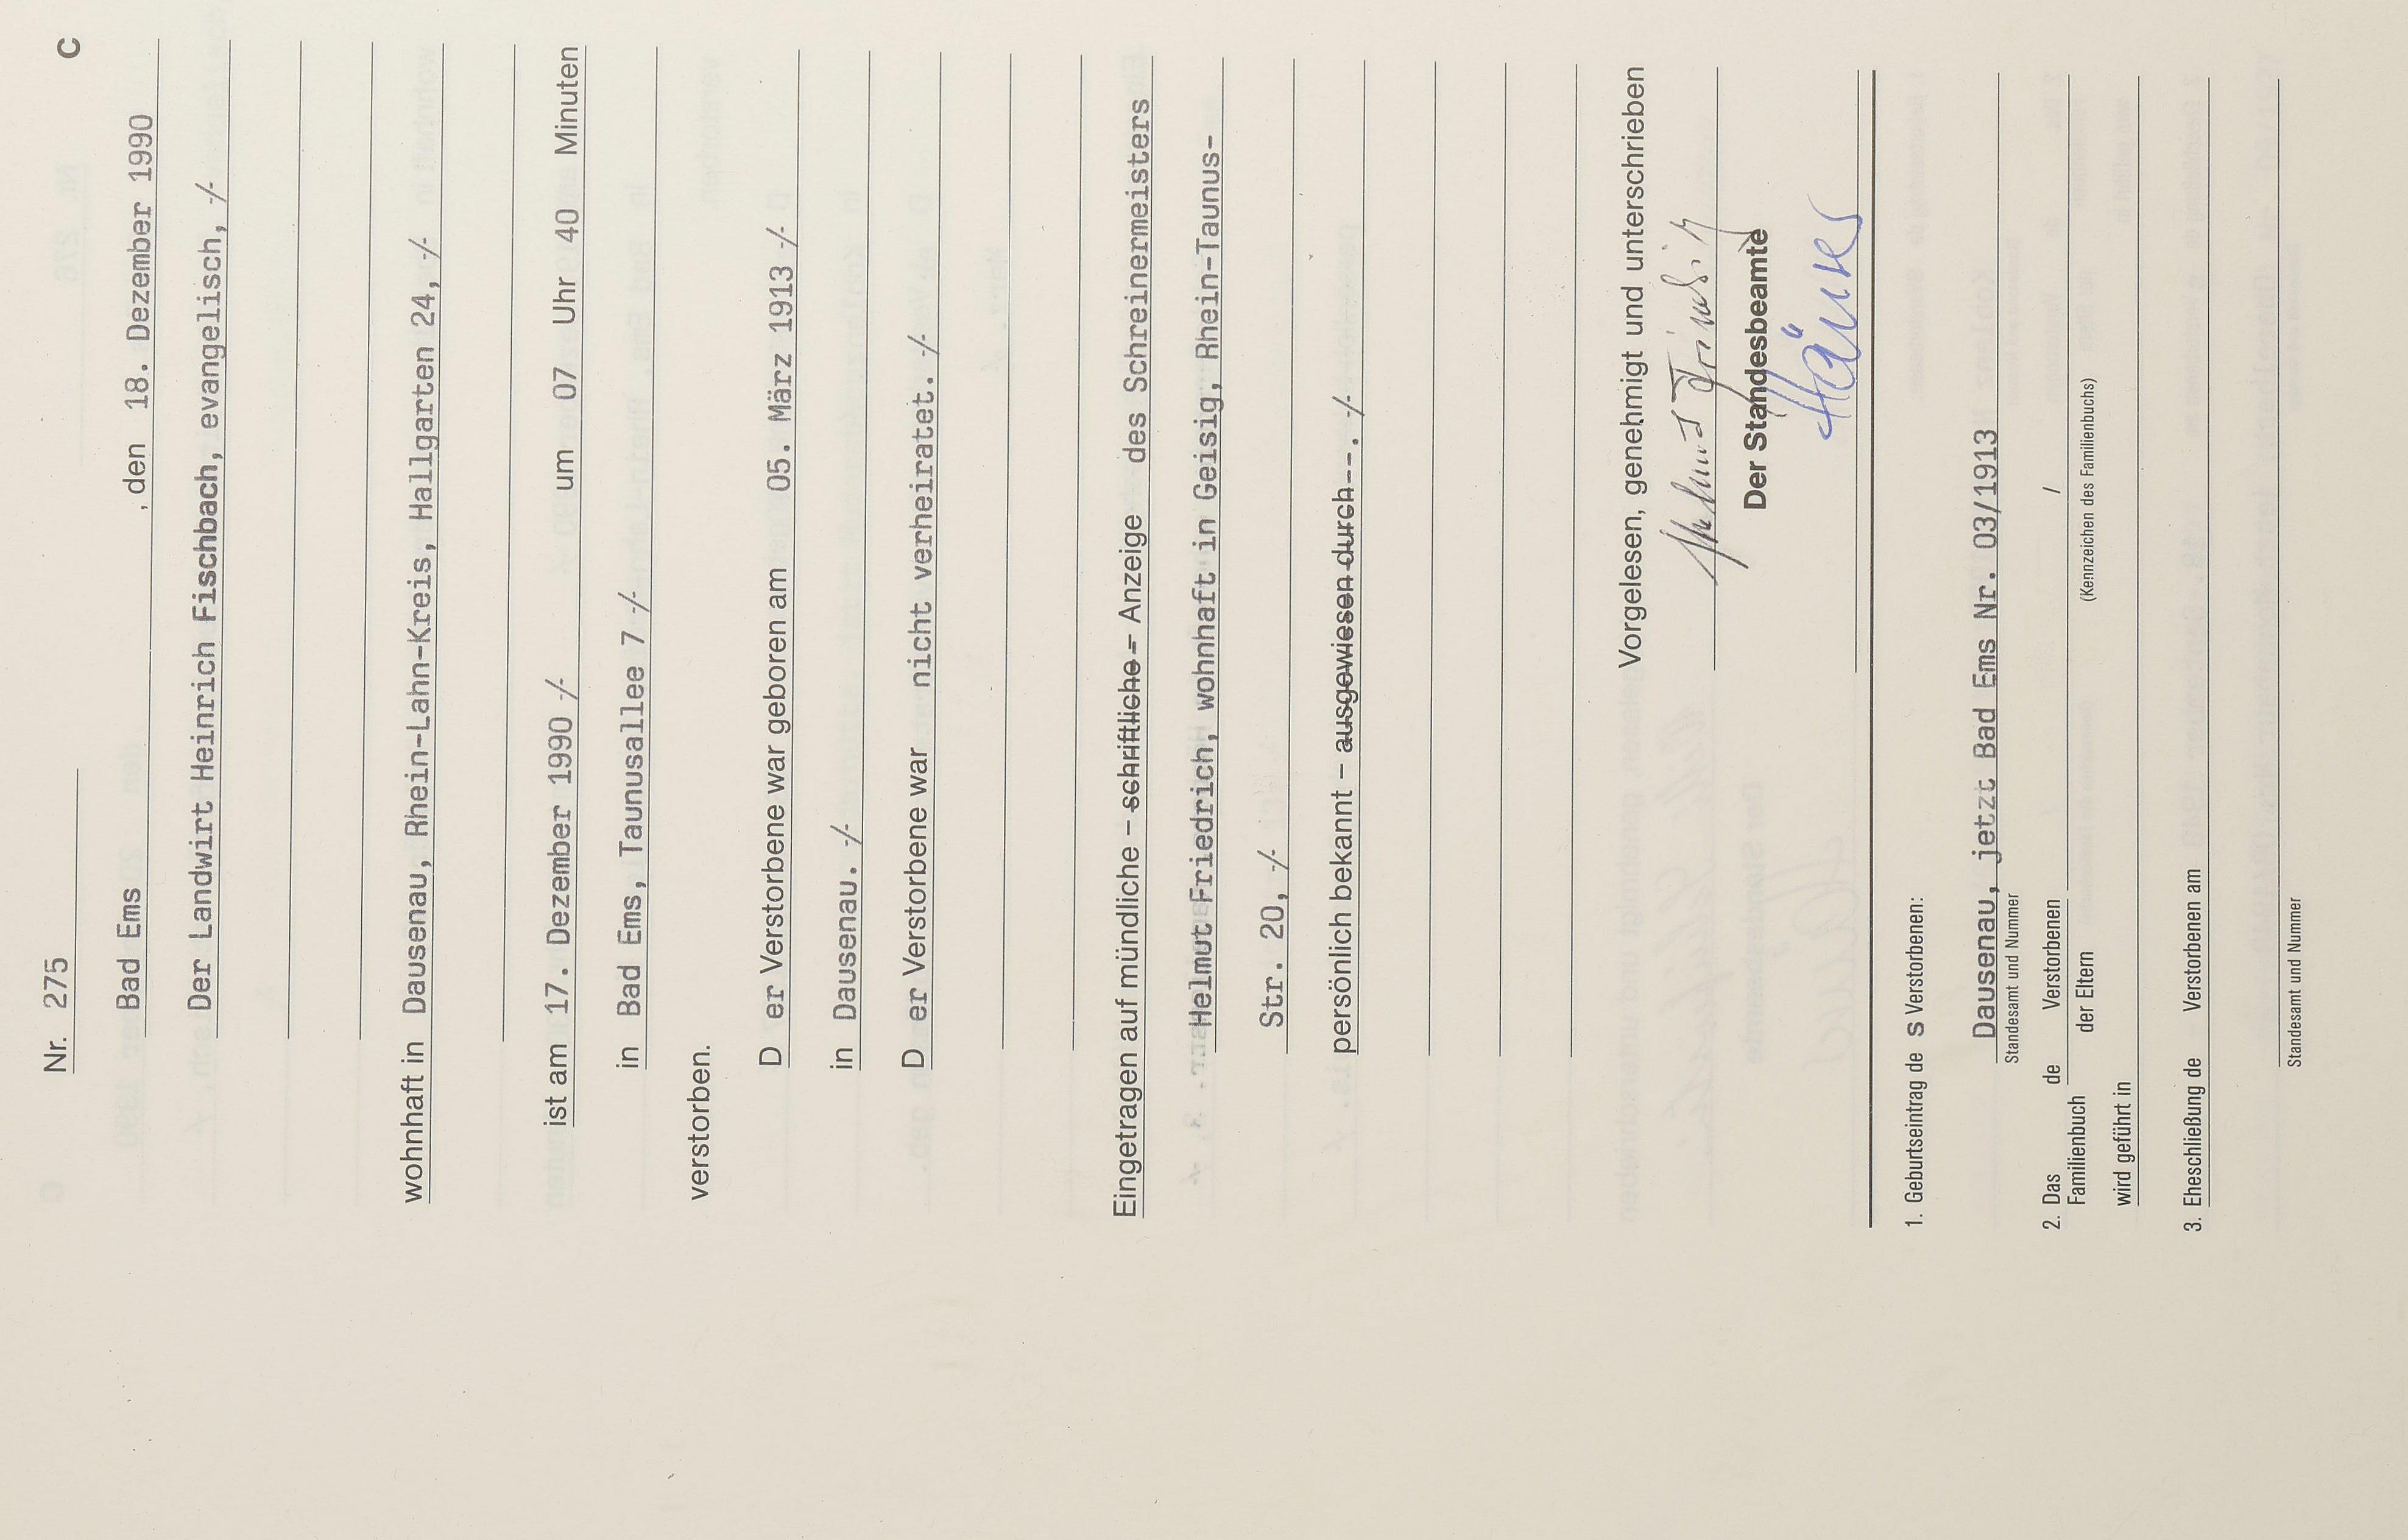 Nr. 275 C
Bad Ems , den 18. Dezember 1990
Der Landwirt Heinrich Fischbach, evangelisch, -/-
wohnhaft in Dausenau, Rhein-Lahn-Kreis, Hallgarten 24, -/-
ist am 17. Dezember 1990 -/- um 07 Uhr 40 Minuten
in Bad Ems, Taunusallee 7 -/-
verstorben.
D er Verstorbene war geboren am 05. März 1913 -/-
in Dausenau. -/-
D er Verstorbene war nicht verheiratet. -/-
Eingetragen auf mündliche – schriftliche – Anzeige des Schreinermeisters
Helmut Friedrich, wohnhaft in Geisig, Rhein-Taunus-
Str. 20, -/-
persönlich bekannt – ausgewiesen durch--. -/-
Vorgelesen, genehmigt und unterschrieben
Helmut Friedrich
Der Standesbeamte
1. Geburtseintrag de s Verstorbenen:
Dausenau, jetzt Bad Ems Nr. 03/1913
Standesamt und Nummer
2. Das de Verstorbenen /
Familienbuch der Eltern (Kennzeichen des Familienbuchs)
wird geführt in
3. Eheschließung de Verstorbenen am
Standesamt und Nummer